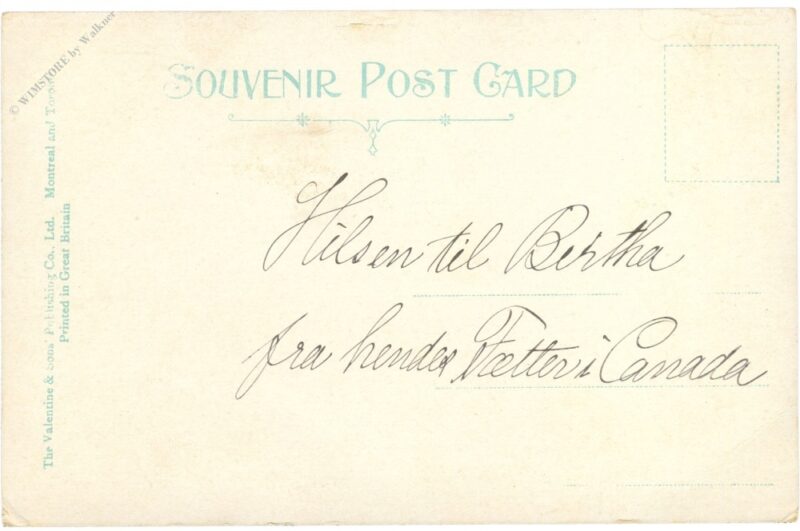 © WIMSTORE by Walkner
SOUVENIR POST CARD
The Valentine & Sons' Publishing Co., Ltd. Montreal and Toronto
Printed in Great Britain
Hilsen til Bertha
fra hendes Fætter i Canada